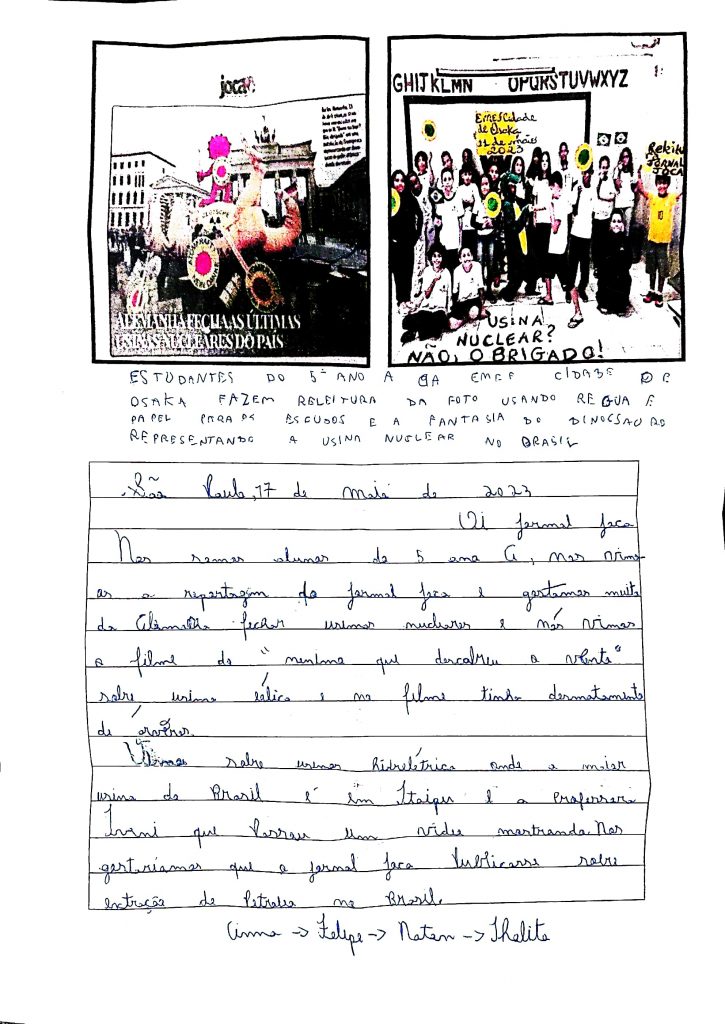 joca
ALEMANHA FECHA AS ÚLTIMAS
USINAS NUCLEARES DO PAÍS
GHIJKLMN OPQRSTUVWXYZ
EMEF Cidade
de Osaka
11 de maio
2023
JORNAL
JOCA
USINA
NUCLEAR?
NÃO, OBRIGADO!
ESTUDANTES DO 5º ANO A DA EMEF CIDADE DE
OSAKA FAZEM RELEITURA DA FOTO USANDO REGUA E
PAPEL PARA OS ESCUDOS E A FANTASIA DO DINOSSAURO
REPRESENTANDO A USINA NUCLEAR NO BRASIL
São Paulo, 17 de maio de 2023
Oi jornal joca
Nos somos alunos do 5 ano A, nos vimo-
os a reportagem do jornal joca e gostamos muito
da Alemanha fechar usinas nucleares e nós vimos
o filme do "menino que descobriu o vento"
sobre usina eólica e no filme tinha desmatamento
de árvores.
Vimos sobre usinas hidrelétrica onde a maior
usina do Brasil é em Itaipu e a professora
Ivani que passou um video mostrando. Nos
gostaríamos que o jornal joca publicasse sobre
extração de Petroleo no Brasil.
Anna -> Felipe -> Natan -> Thalita